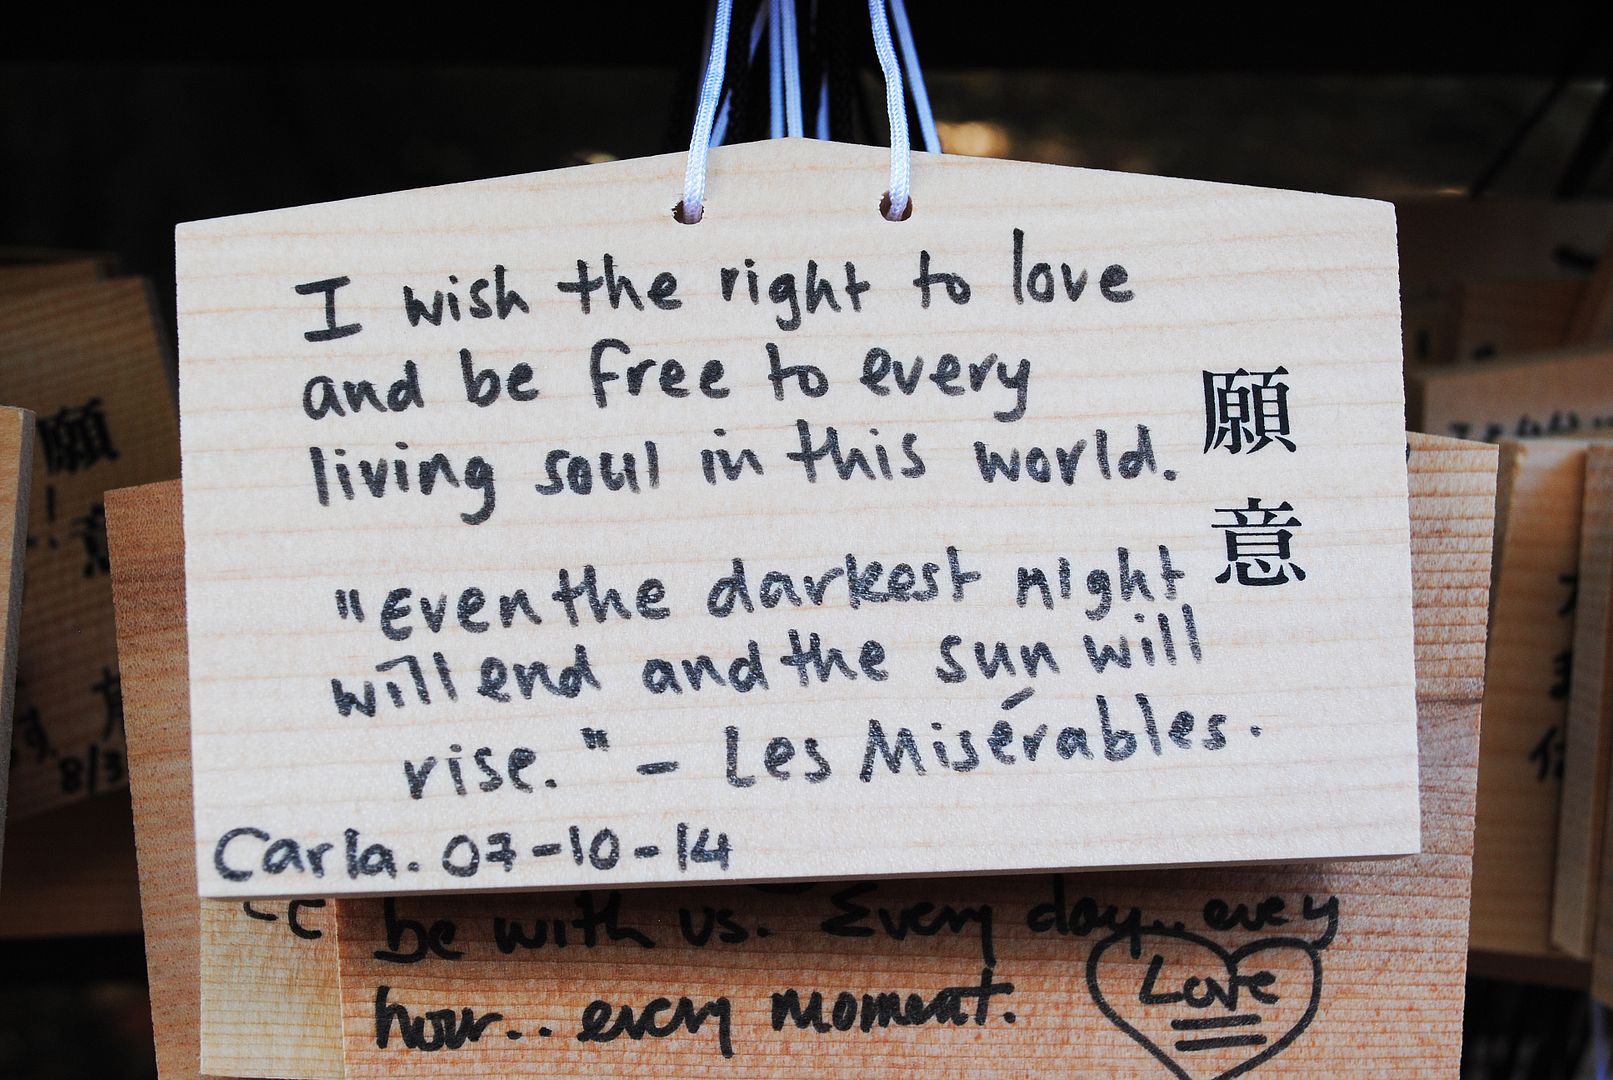 I wish the right to love
and be free to every
living soul in this world.
"Even the darkest night
will end and the sun will
rise." - Les Misérables.
Carla. 07-10-14
願
意
be with us. Every day... every
hour.. every moment.
Love
願
意
8/3